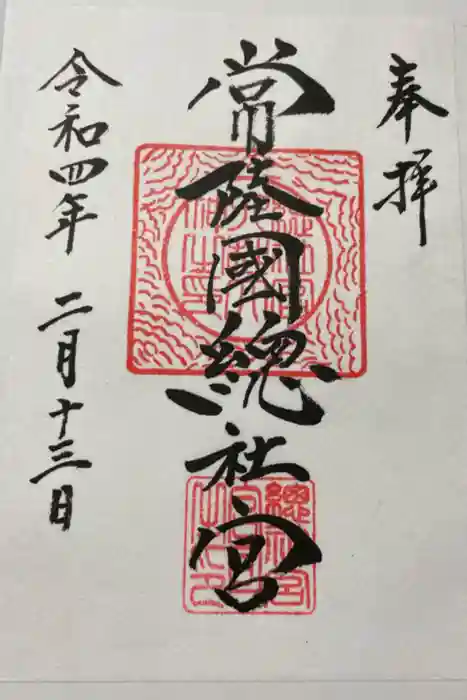 奉拝
常陸國總社宮
令和四年 二月十三日